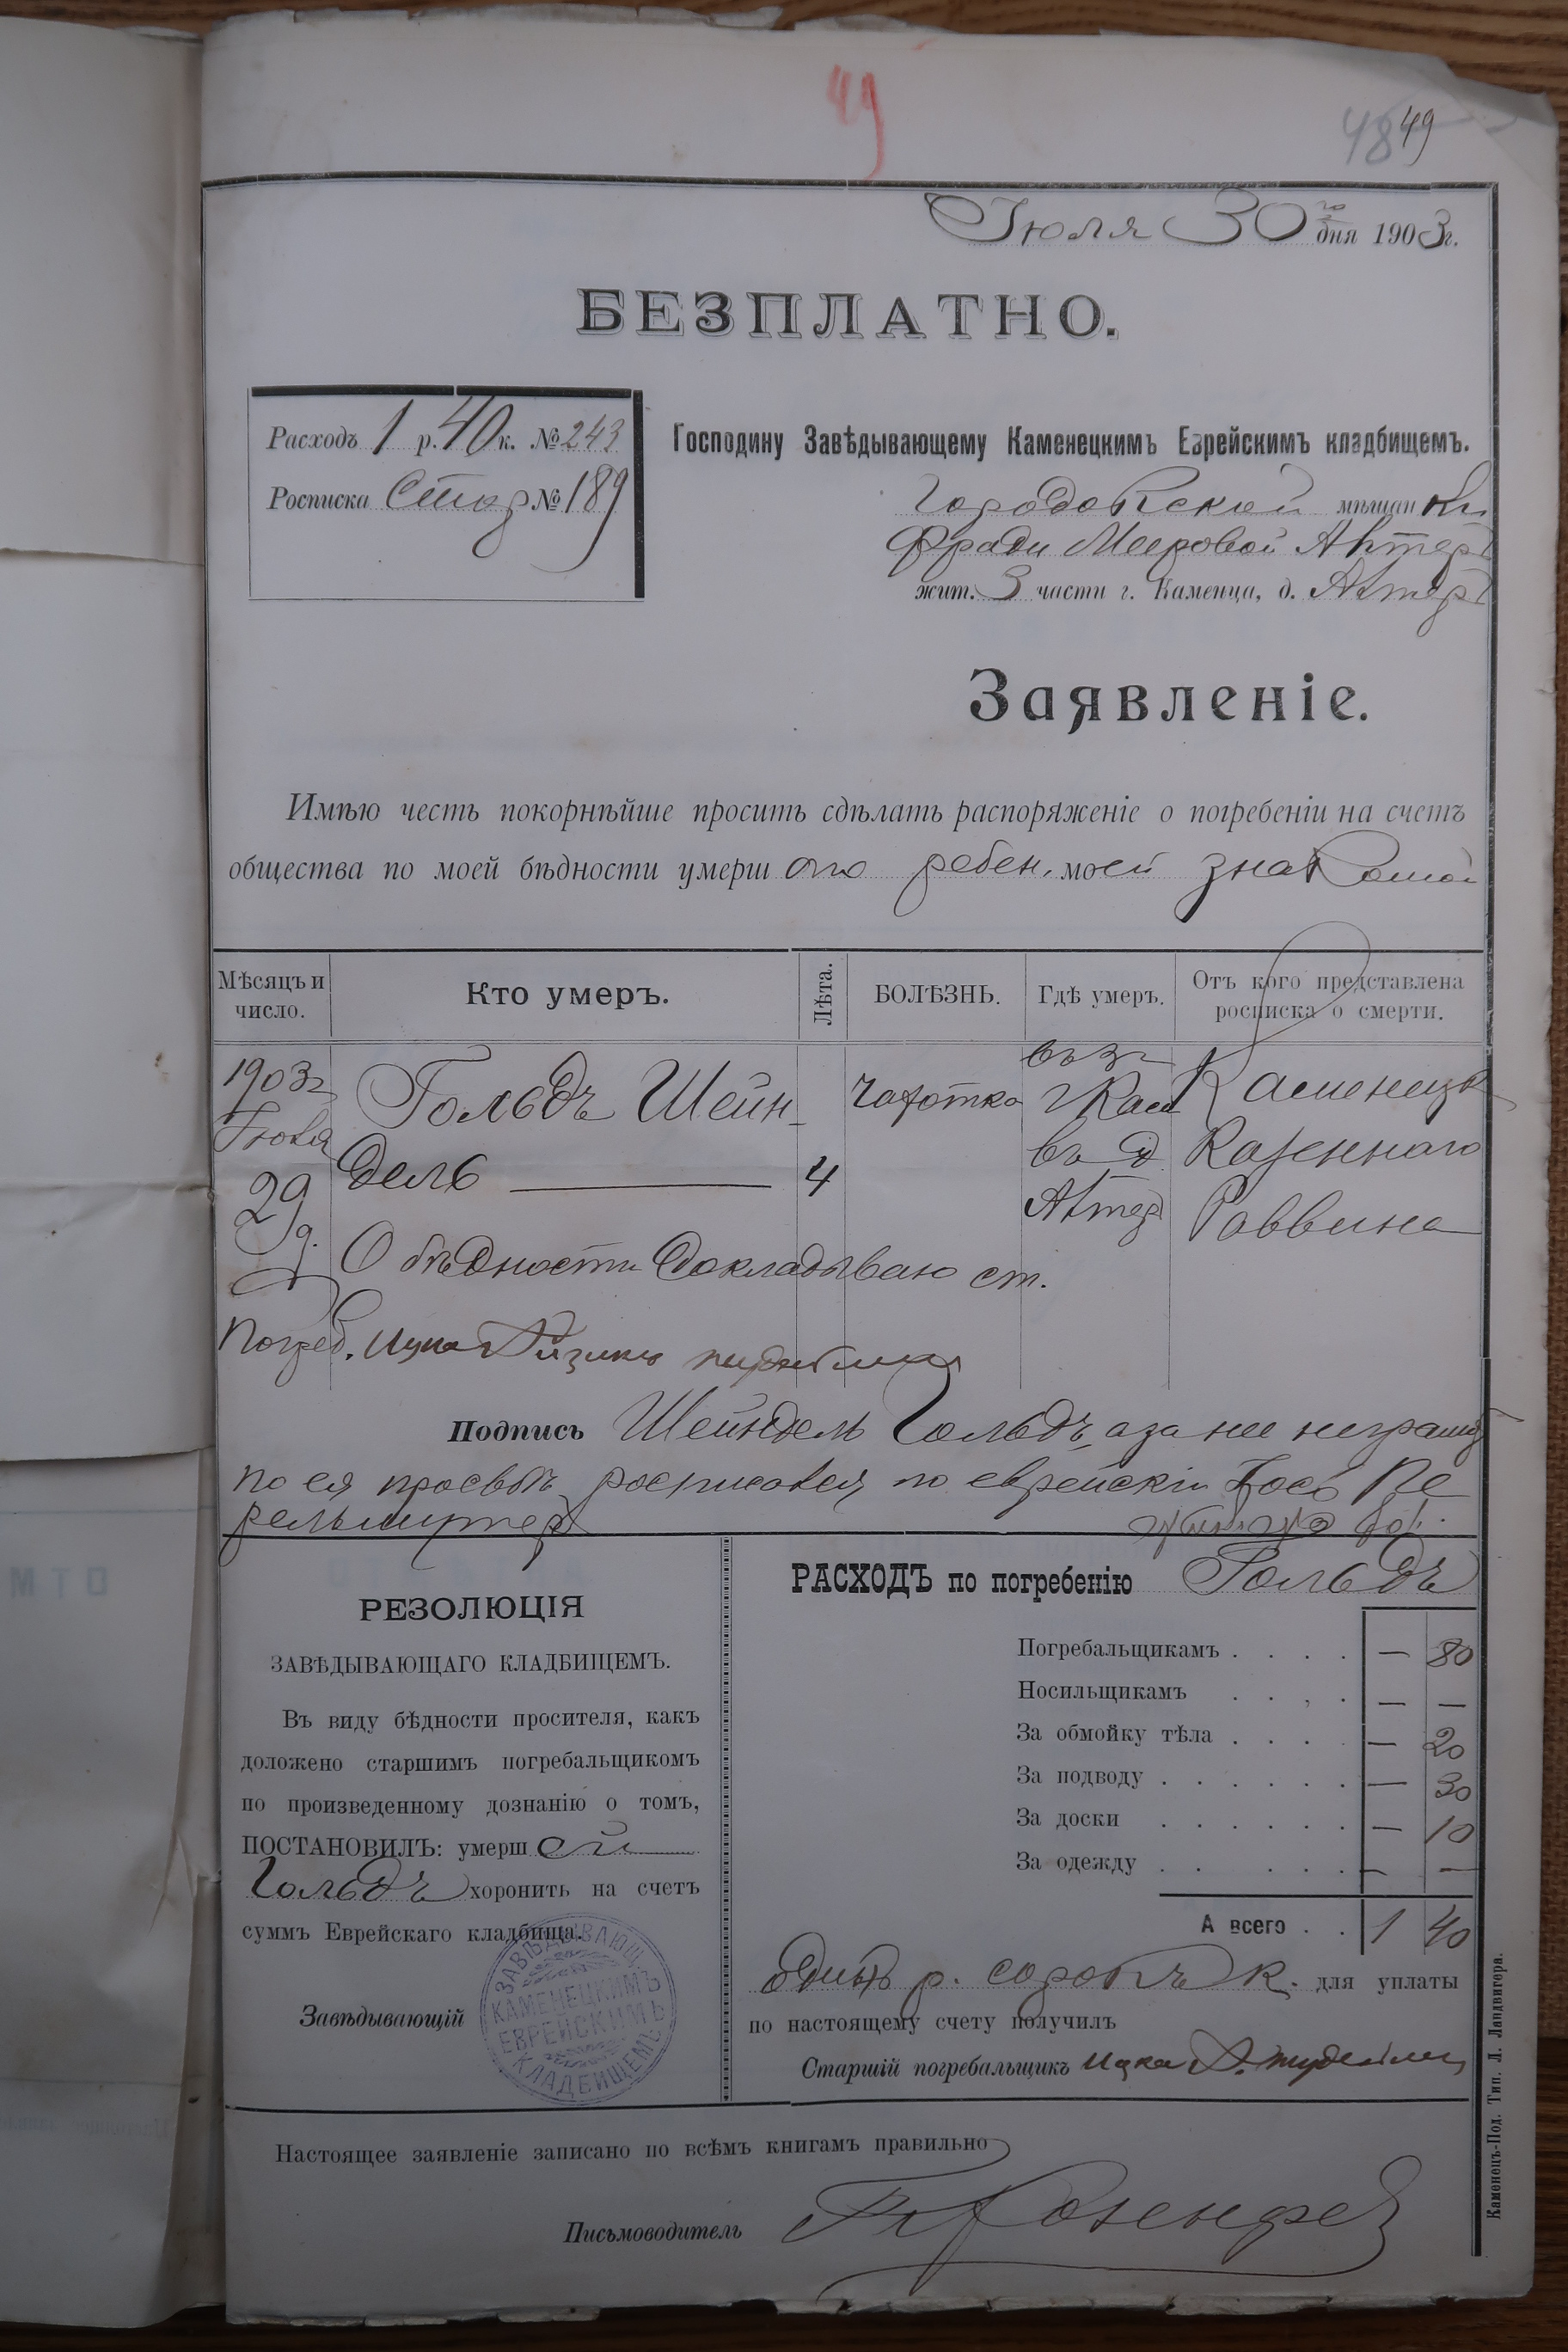 49
48 49
Іюля 30 го дня 1903 г.
БЕЗПЛАТНО.
Расходъ 1 р. 40 к. № 243
Росписка Стар № 189
Господину Завѣдывающему Каменецкимъ Еврейскимъ кладбищемъ.
Городокской мѣщанки
Фради Мееровой Ахтеръ
жит. 3 части г. Каменца, д. Ахтеръ
Заявленіе.
Имѣю честь покорнѣйше просить сдѣлать распоряженіе о погребеніи на счетъ
общества по моей бѣдности умерш ого ребен. моей знакомой
Мѣсяцъ и число.
Кто умеръ.
Лѣта.
БОЛѢЗНЬ.
Гдѣ умеръ.
Отъ кого представлена росписка о смерти.
1903 г
Іюля
29
Гольдъ Шейн-
дель
4
Чахотка
въ 3 г
г Кам
въ д
Ахтер
Каменецк
Казеннаго
Раввина
О бѣдности докладываю ст.
Погреб.
Подпись Шейндель Гольдъ, а за нее неграмот
по ея просьбѣ росписался по еврейски Іось Пе
рельмутеръ
РЕЗОЛЮЦІЯ
ЗАВѢДЫВАЮЩАГО КЛАДБИЩЕМЪ.
Въ виду бѣдности просителя, какъ
доложено старшимъ погребальщикомъ
по произведенному дознанію о томъ,
ПОСТАНОВИЛЪ: умерш ей
Гольдъ хоронить на счетъ
суммъ Еврейскаго кладбища.
Завѣдывающій
ЗАВѢДЫВАЮЩ.
КАМЕНЕЦКИМЪ
ЕВРЕЙСКИМЪ
КЛАДБИЩЕМЪ
РАСХОДЪ по погребенію Гольдъ
Погребальщикамъ . . . . — 80
Носильщикамъ . . , . — —
За обмойку тѣла . . . . — 20
За подводу . . . . . . — 30
За доски . . . . . . — 10
За одежду . . . . . — —
А всего . . 1 40
Одинъ р. сорокъ к. для уплаты
по настоящему счету получилъ
Старшій погребальщикъ
Настоящее заявленіе записано по всѣмъ книгамъ правильно
Письмоводитель
Каменецъ-Под. Тип. Л. Ландвигера.